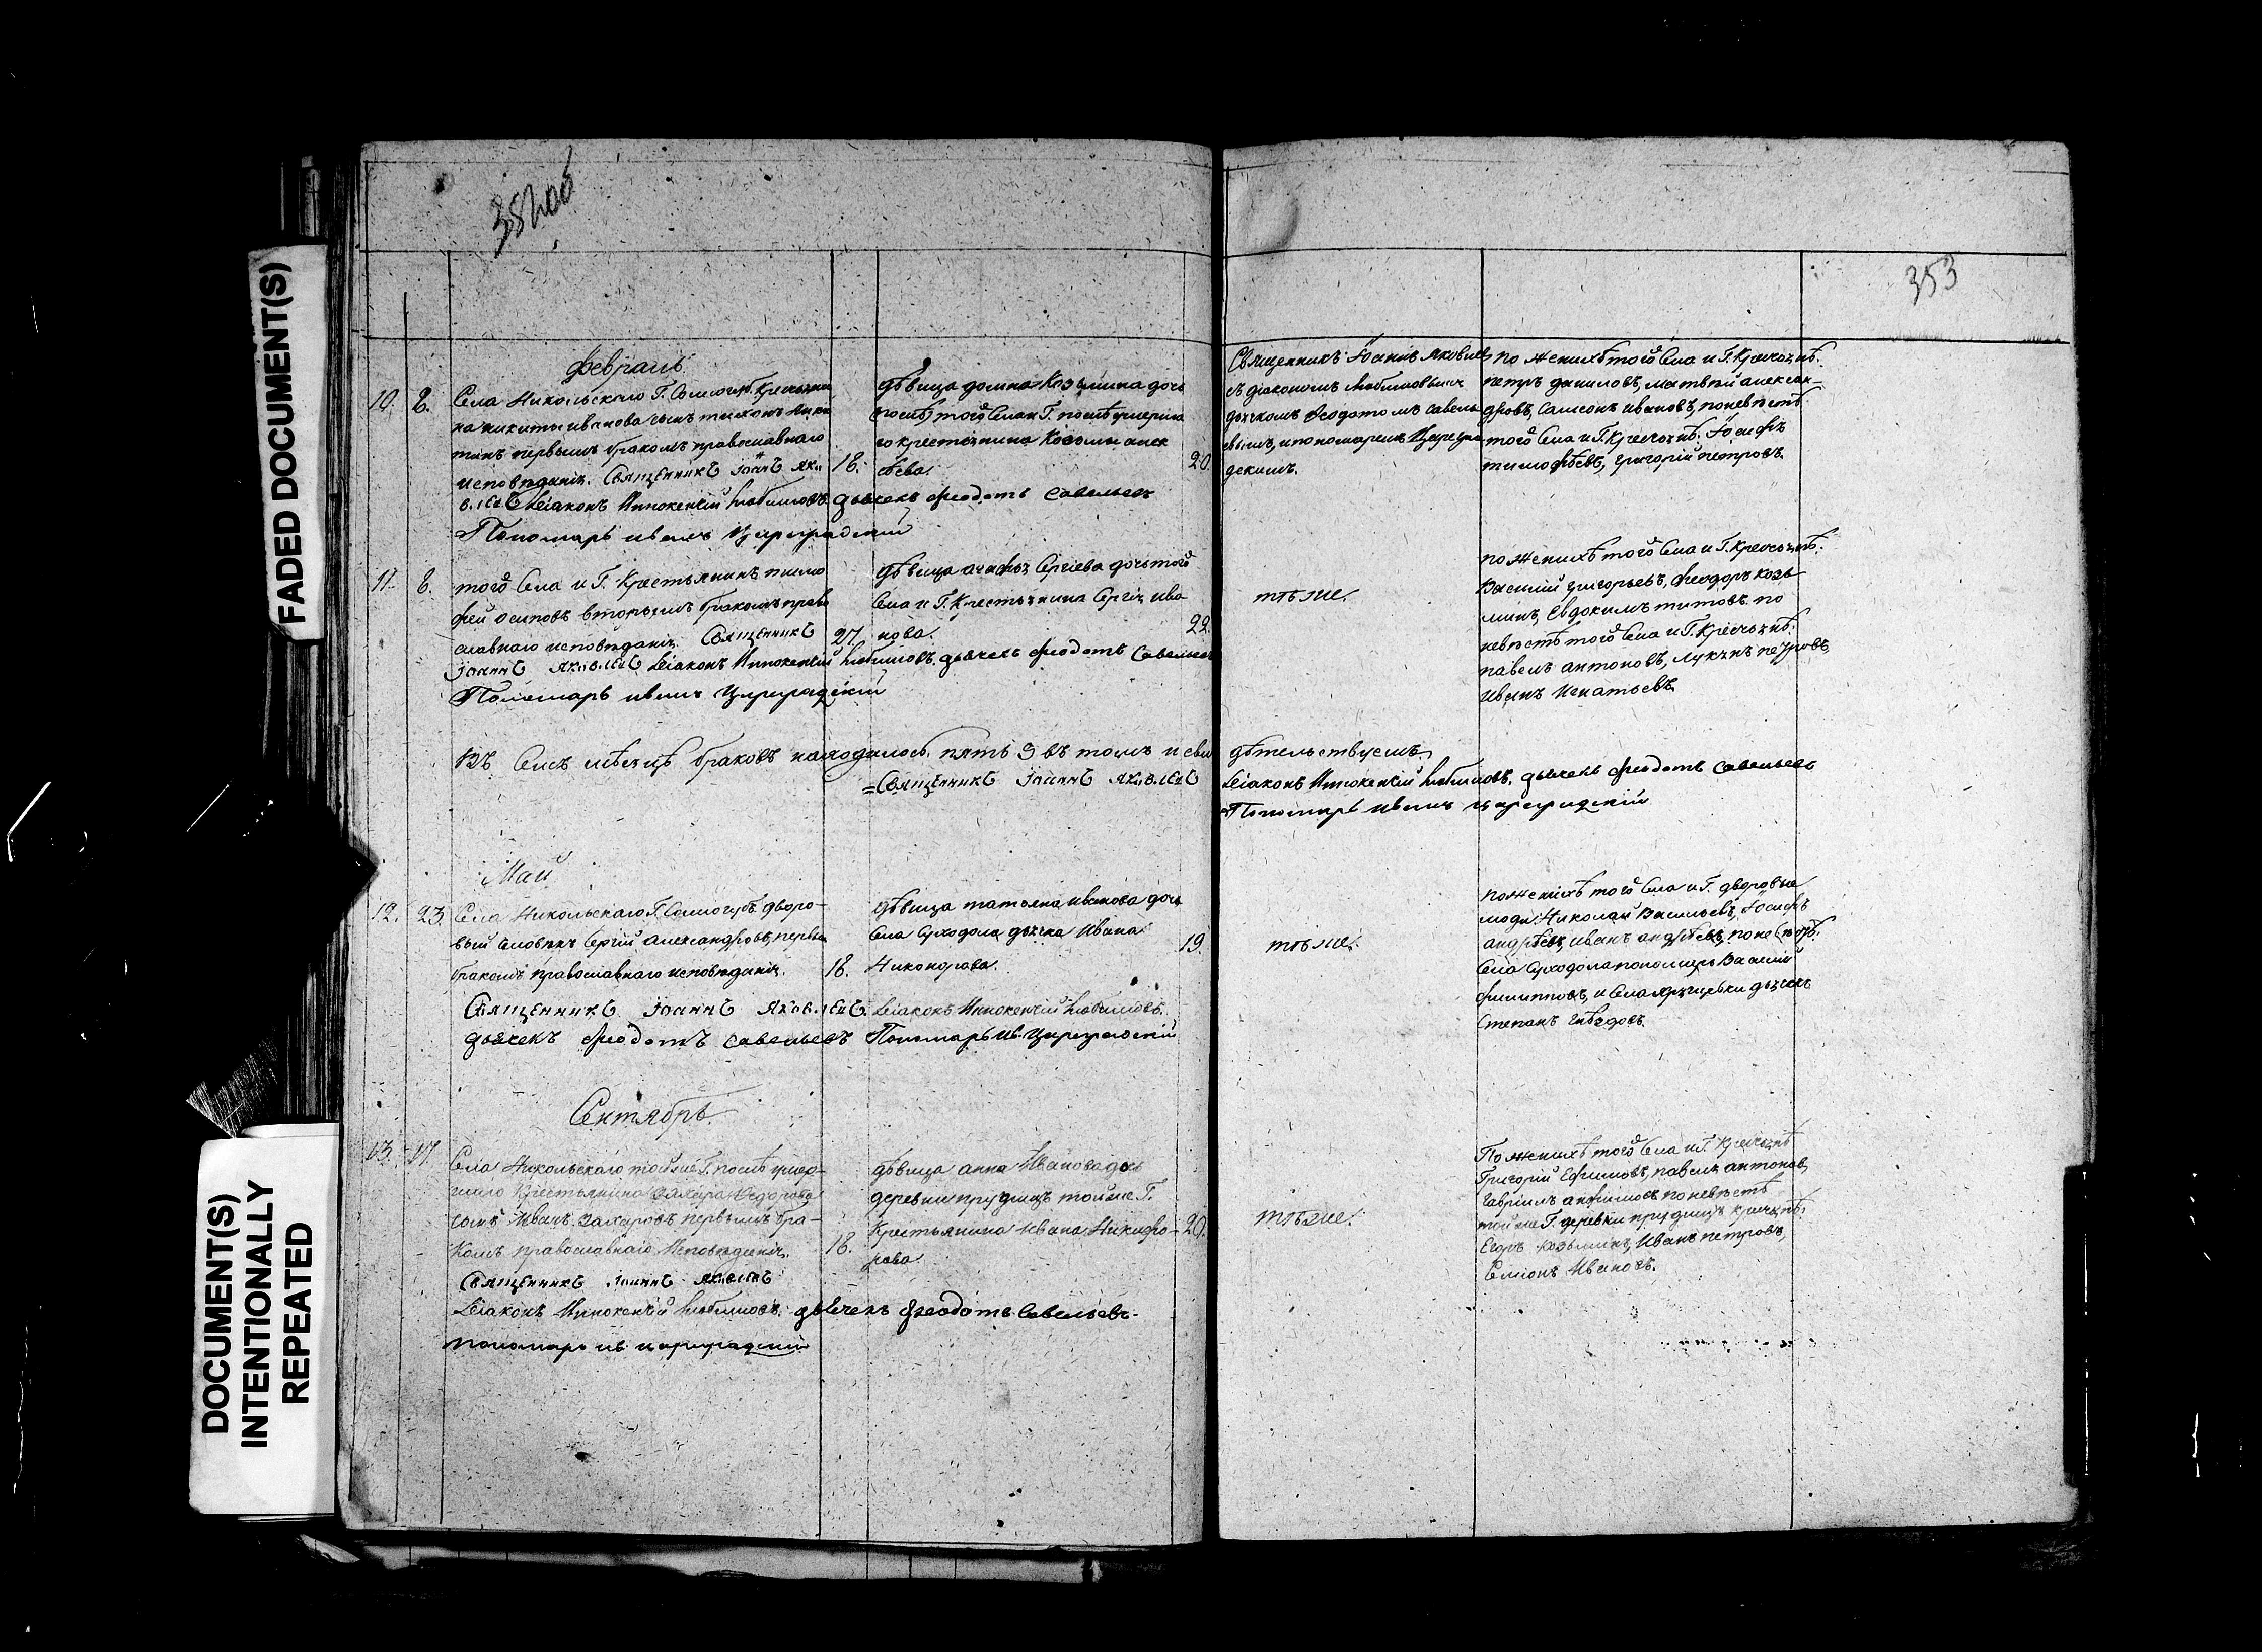 353
Февраль
10. 8.
Села Никольскаго Г. Самогуб. Крестьяни
на никиты иванова сынъ тихонъ ники
тинъ первымъ бракомъ православнаго
исповѣданія. Священникъ Iоаннъ Яко
влевъ Діаконъ Иннокентій Любимовъ дьячекъ Феодотъ Савельевъ
Пономарь иванъ Цареградскій
18.
дѣвица домна Козьмина дочь
послѣ умерша
го крестьянина Козьмы алек
20.
Священникъ Iоаннъ Яковлевъ
съ діакономъ Любимовымъ
дьячкомъ Феодотомъ савель
евымъ, и пономаремъ Цареgra
дскимъ.
по женихѣ того Села и Г. Крестьянѣ:
петръ даниловъ, матвѣй алексан-
дровъ, Самсонъ ивановъ, по невѣстѣ
того Села и Г. Крестьянѣ: Iосифъ
тимофѣевъ, григорій петровъ.
11. 8.
того Села и Г. Крестьянинъ тимо
фей осиповъ вторымъ бракомъ право
славнаго исповѣданія. Священникъ
Iоаннъ Яковлевъ Діаконъ Иннокентій Любимовъ. дьячекъ Феодотъ Савельевъ
Пономарь иванъ Цареградскій
27
дѣвица агафья Сергіева дочь того
Села и Г. Крестьянина Сергія ива
нова.
22.
тѣже.
по женихѣ того Села и Г. Крестьянѣ:
Василій григорьевъ, Феодоръ козь
минъ, Евдокимъ титовъ. по
невѣстѣ того Села и Г. Крестьянѣ:
павелъ антоновъ, лукьянъ петровъ,
Иванъ Игнатьевъ.
Въ Семъ мѣсяцѣ браковъ находилось пять 5 въ томъ и сви
дѣтельствуемъ.
Священникъ Iоаннъ Яковлевъ
Діаконъ Иннокентій Любимовъ. дьячекъ Феодотъ Савельевъ
Пономарь иванъ цареградскій
Май
12. 23.
Села Никольскаго Г. Самогуб. дворо-
вый человѣкъ Сергій александровъ, первымъ
бракомъ православнаго исповѣданія.
Священникъ Iоаннъ Яковлевъ. Діаконъ Иннокентій Любимовъ.
дьячекъ Феодотъ Савельевъ Пономарь Ив. Цареградскій
18.
дѣвица татьяна иванова дочь
Села Суходола дьячка Ивана
Никонорова.
19.
тѣже.
по женихѣ того Села и Г. дворовые
люди Николай Васильевъ, Iосифъ
андрѣевъ, иванъ андрѣевъ, по невѣстѣ:
Села Суходола пономарь Василій
филипповъ, и Села дьячекъ
Степанъ Гнѣздовъ.
Сентябрь.
13. 17.
Села Никольскаго той же Г. послѣ умер-
шаго Крестьянина Захара Федорова
сынъ Иванъ Захаровъ первымъ бра-
комъ православнаго Исповѣданія.
Священникъ Iоаннъ Яковлевъ
Діаконъ Иннокентій Любимовъ. дьячекъ Феодотъ Савельевъ.
пономарь ив. цареградскій
18.
дѣвица анна Иванова дочь
деревни прудищъ той же Г.
Крестьянина Ивана Никифо-
рова
20.
тѣже.
По женихѣ того Села и Г. Крестьянѣ
Григорій Ефимовъ, павелъ антоновъ,
гавріилъ анфимовъ по невѣстѣ
той же Г. деревни прудищъ крестьянѣ:
Егоръ Козьминъ, Иванъ петровъ,
Симіонъ Ивановъ.
FADED DOCUMENT(S)
DOCUMENT(S)
INTENTIONALLY
REPEATED